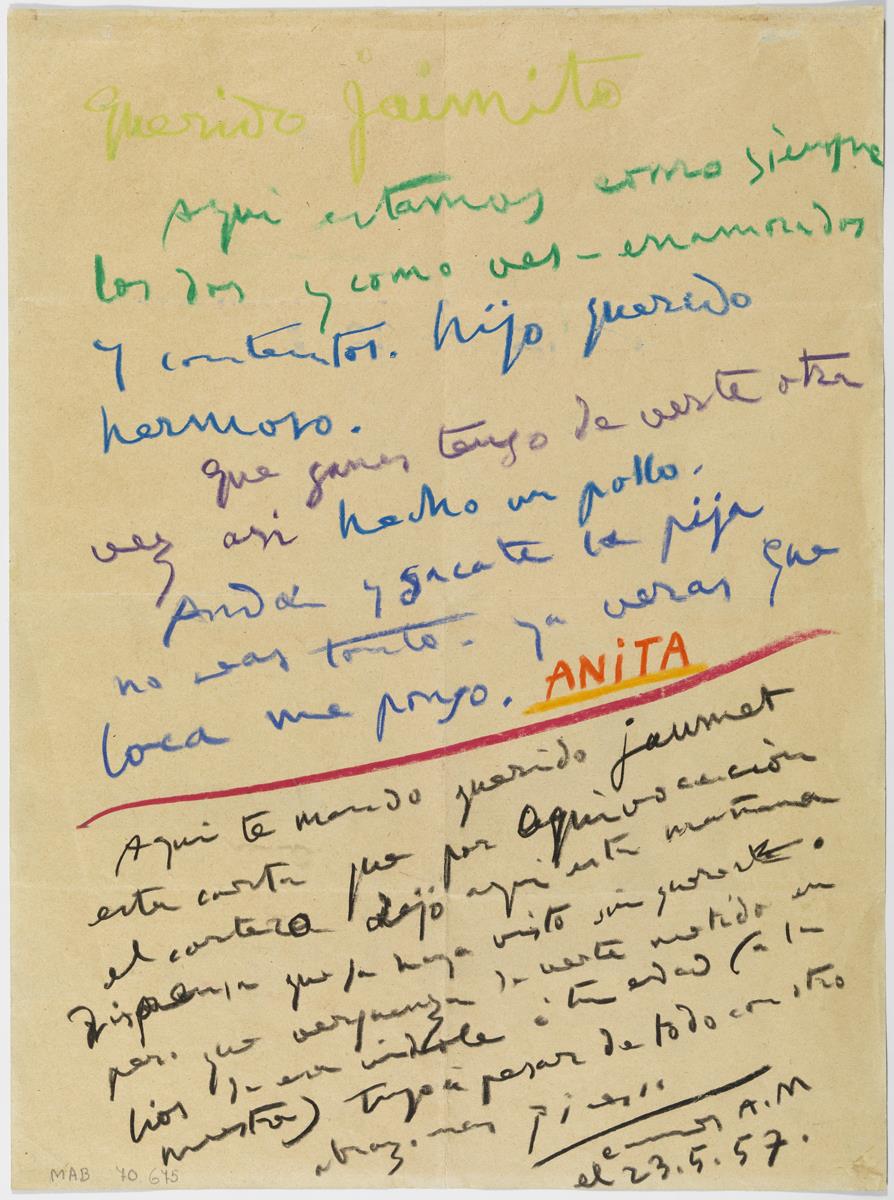 Querido jaimito
Aqui estamos como siempre
los dos y como ves - enamorados
y contentos. hijo querido
hermoso.
que ganas tengo de verte otra
vez asi hecho un pollo.
Andá y sacate la pija
no seas tonto - ya veras que
loca me pongo. ANiTA
Aqui te mando querido jaumet
esta carta que por equivocación
el cartero dejó aqui esta mañana
Dispensa que la haya visto sin quererte.
pero que verguenza de verte metido en
lios de esa indole á tu edad (a la
nuestra) tuyo á pesar de todo con otro
abrazo mas picasso
Cannes A.M
el 23.5.57.
MAB 70.675